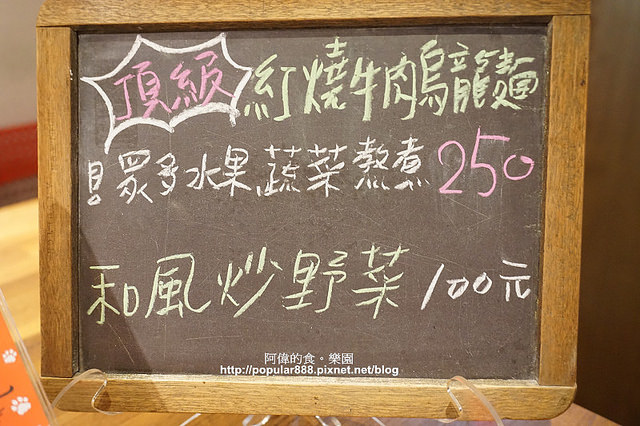 頂級 紅燒牛肉烏龍麵
!眾多水果.蔬菜熬煮 250
和風炒野菜 100元
阿偉的食。樂園
http://popular888.pixnet.net/blog